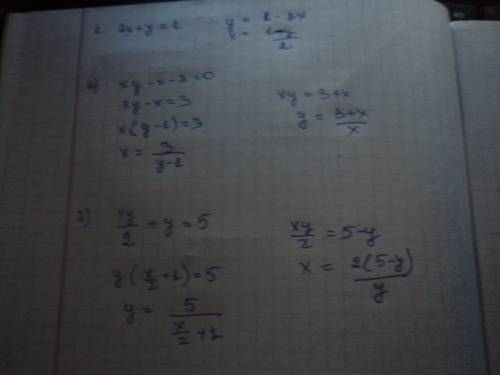 1. 2x+y=1
y = 1-2x
x = \frac{1-y}{2}
2) xy-x-3=0
xy-x=3
x(y-1)=3
x = \frac{3}{y-1}
xy = 3+x
y = \frac{3+x}{x}
3) \frac{xy}{2} + y = 5
y(\frac{x}{2}+1)=5
y = \frac{5}{\frac{x}{2}+1}
\frac{xy}{2} = 5-y
x = \frac{2(5-y)}{y}